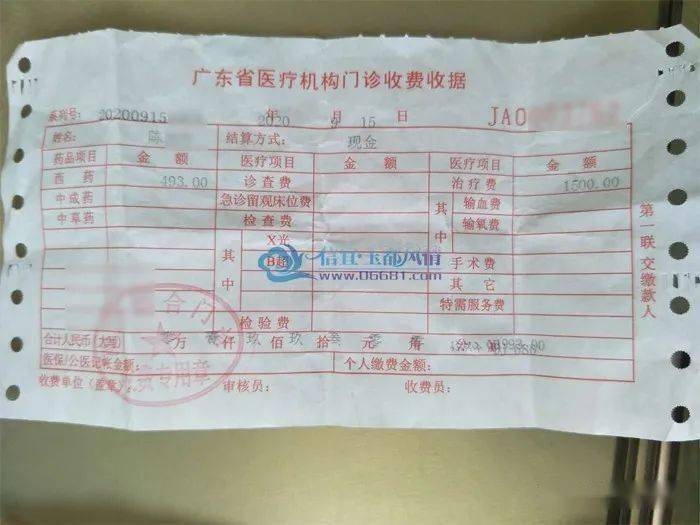 广东省医疗机构门诊收费收据
系列号: 20200915 年 2020 月 9 15 日 JA0
姓名: 陈 结算方式: 现金
药品项目 金 额 医疗项目 金 额 医疗项目 金 额
西 药 493.00 诊查费 治疗费 1500.00
中成药 急诊留观床位费 其中 输血费
中草药 检查费 输氧费
其中 X光
B超 手术费
其 它
特需服务费
检验费
信宜·玉都风情
www.06681.com
合计人民币(大写) 万 仟 玖 佰 玖 拾 叁 元 零 角 分
医保/公医记帐金额: 个人缴费金额:
收费单位(盖章): 审核员: 收费员:
第一联 交缴款人
合门
专用章